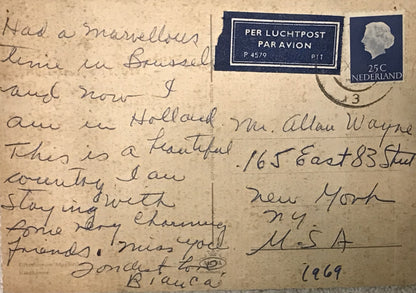 Had a marvellous
time in Brussel
and now I
am in Holland
This is a beautiful
country I am
staying with
some very charming
friends. Miss you
Fondest love
Bianca
PER LUCHTPOST
PAR AVION
P 4579 PTT
25 C
NEDERLAND
3
Mr. Allan Wayne
165 East 83 Street
New York
NY
USA
1969